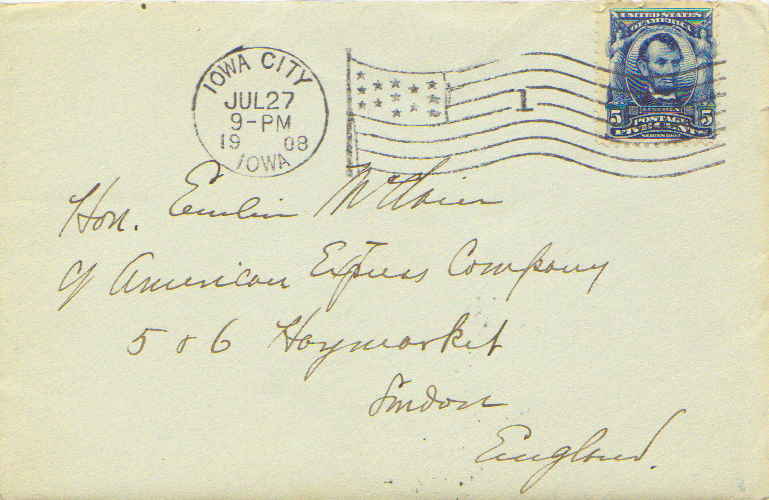 IOWA CITY
JUL 27
9-PM
19 08
IOWA
1
UNITED STATES
OF AMERICA
5 POSTAGE 5
FIVE CENTS
Hon. Emlin McClain
American Express Company
5 & 6 Haymarket
London
England.